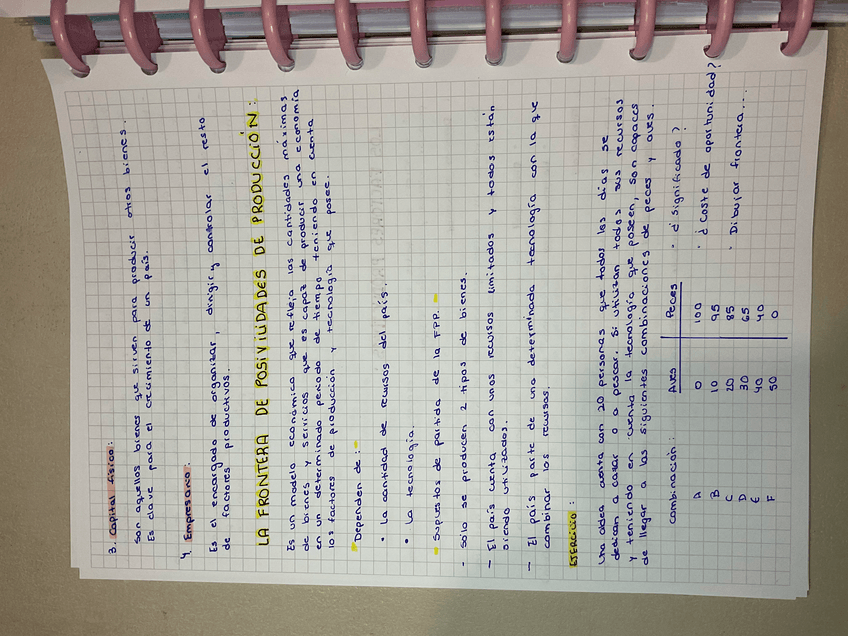 3. Capital físico:
Son aquellos bienes que sirven para producir otros bienes.
Es clave para el crecimiento de un país.
4. Empresario:
Es el encargado de organizar, dirigir y controlar el resto
de factores productivos.
LA FRONTERA DE POSIVILIDADES DE PRODUCCIÓN:
Es un modelo económico que refleja las cantidades máximas
de bienes y servicios que es capaz de producir una economía
en un determinado periodo de tiempo teniendo en cuenta
los factores de producción y tecnología que posee.
Dependen de:
• La cantidad de recursos del país.
• La tecnología.
Supuestos de partida de la FPP.
- Sólo se producen 2 tipos de bienes.
- El país cuenta con unos recursos limitados y todos están
siendo utilizados.
- El país parte de una determinada tecnología con la que
combinar los recursos.
EJERCICIO:
Una aldea cuenta con 20 personas que todos los días se
dedican a cazar o a pescar. Si utilizan todos sus recursos
y teniendo en cuenta la tecnología que poseen, son capaces
de llegar a las siguientes combinaciones de peces y aves.
combinación: Aves Peces
A 0 100
B 10 95
C 20 85
D 30 65
E 40 40
F 50 0
• ¿Significado?
• ¿Coste de oportunidad?
• Dibujar frontera...